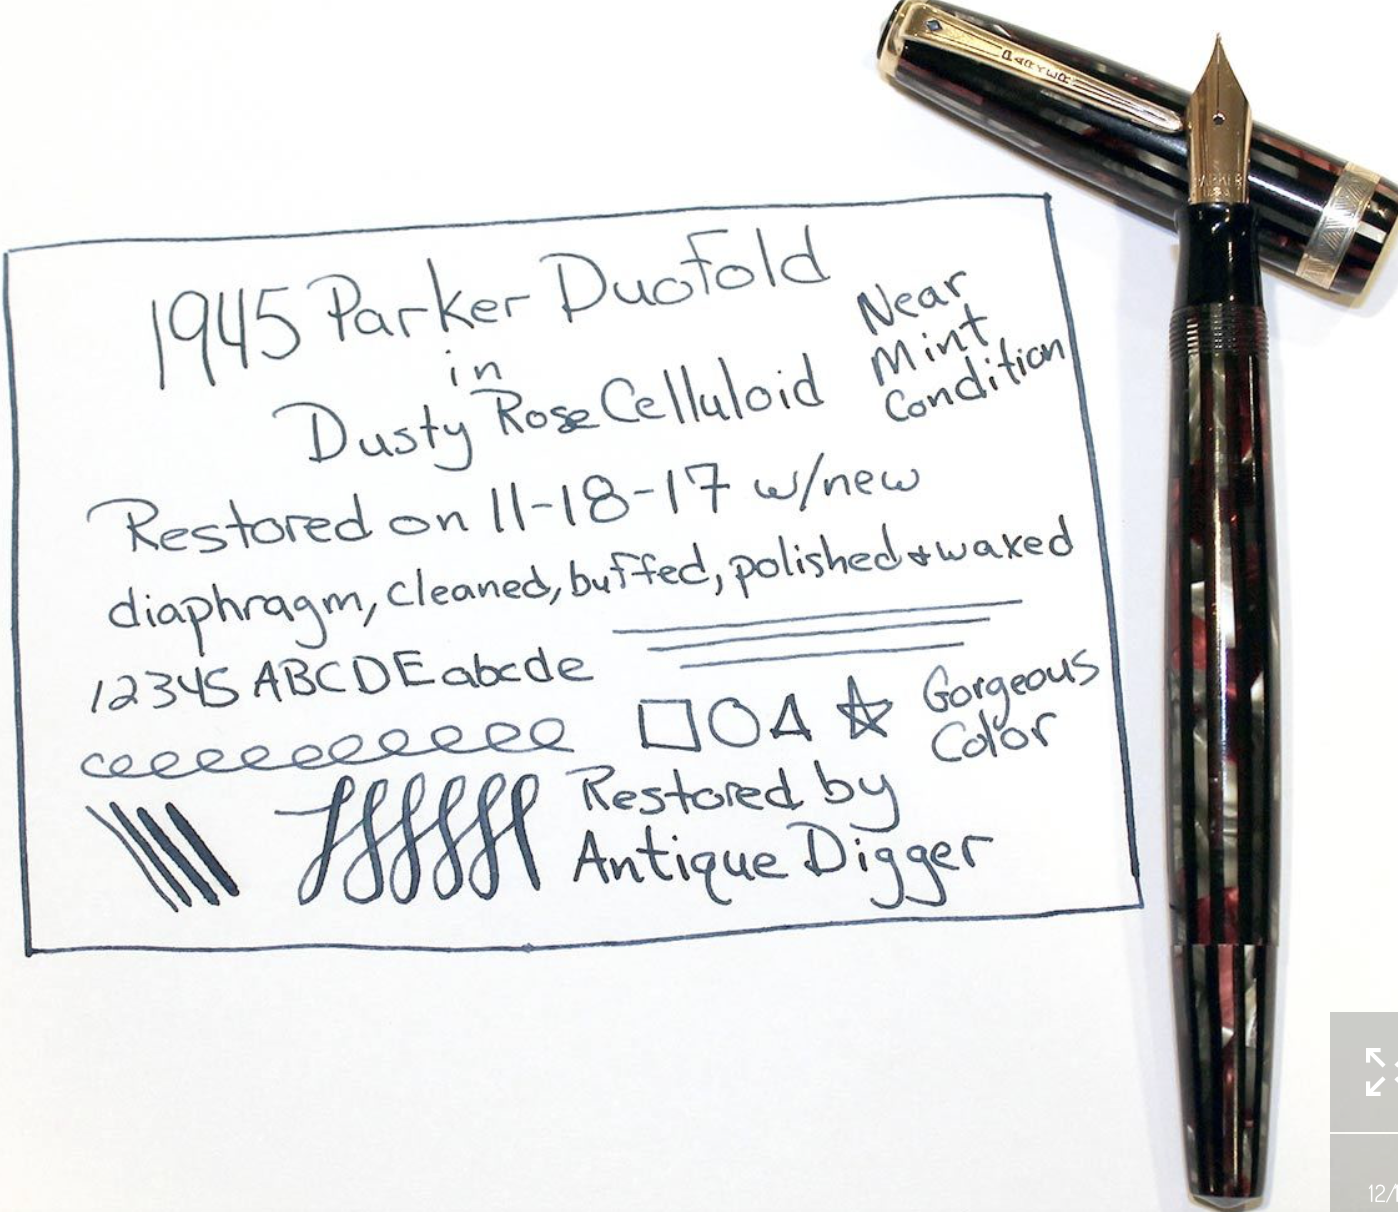 1945 Parker Duofold
in
Dusty Rose Celluloid
Near
Mint
Condition
Restored on 11-18-17 w/new
diaphragm, cleaned, buffed, polished + waxed
12345 ABCDE abcde
Gorgeous
Color
Restored by
Antique Digger
PARKER
PARKER
12/1